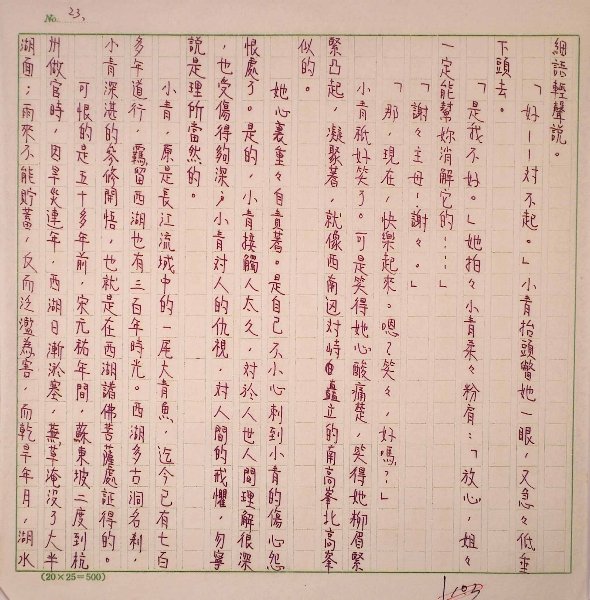 No. 23,
細語輕聲說。
「好——對不起。」小青抬頭瞥她一眼，又急々低垂
下頭去。
「是我不好。」她拍々小青柔々粉肩：「放心，姐々
一定能幫妳消解它的……」
「謝々主母—謝々。」
「那，現在，快樂起來。嗯？笑々，好嗎？」
小青祇好笑了。可是笑得她心酸痛楚，笑得她柳眉緊
緊凸起，凝聚著，就像西南迢对峙矗立的南高峯北高峯
似的。
她心裏重々自責著。是自己不小心刺到小青的傷心怨
恨處了。是的，小青接觸人太久，对於人世人間理解很深
，也受傷得夠深；小青对人的仇視，对人間的戒懼，勿寧
說是理所當然的。
小青，原是長江流域中的一尾大青魚，迄今已有七百
多年道行，羈留西湖也有三百年時光。西湖多古洞名剎，
小青深湛的參修開悟，也就是在西湖諸佛菩薩處証得的。
可恨的是五十多年前，宋元祐年間，蘇東坡二度到杭
州做官時，因旱災連年，西湖日漸淤塞，蕪草淹没了大半
湖面；雨來不能貯蓄，反而泛濫為害。而乾旱年月，湖水
(20×25=500)